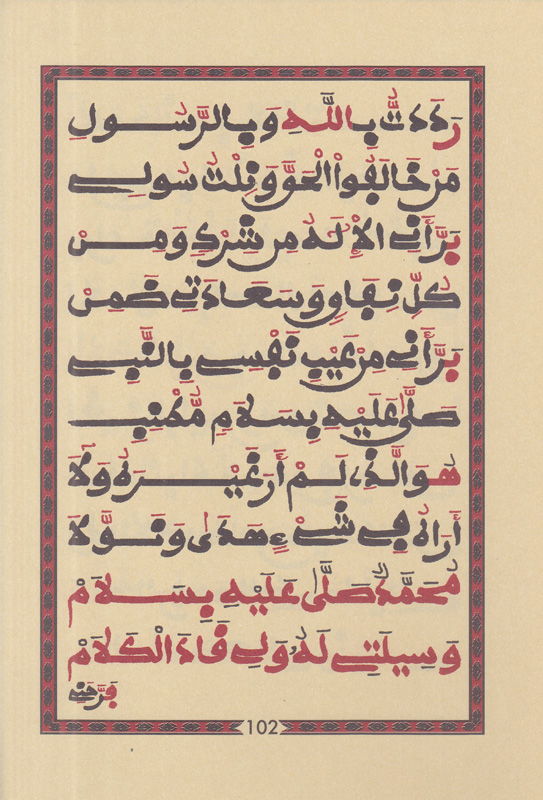 رَدَدتُّ بِاللَّهِ وَبِالرَّسُولِ
مَنْ خَالَفُوا الْحَقَّ وَنِلْتُ سُولِي
بَرَّأَنِي الْإِلَهُ مِن شِرْكٍ وَمِنْ
كُلِّ نِفَاقٍ وَسَعَادَتِي ضَمِنْ
بَرَّأَنِي مِنْ عَيْبِ نَفْسِي بِالنَّبِي
صَلَّى عَلَيْهِ بِسَلَامٍ
هُوَ الَّذِي لَمْ أَرَ غَيْرَهُ وَلَا
أَرَاهُ فِي شَيْءٍ هَدَى وَنَوَّلَا
مُحَمَّدٌ صَلَّى عَلَيْهِ بِسَلَامْ
وَسِيلَتِي لَهُ وَلِي قَادَ الْكَلَامْ
فَرَّحَنِي
102